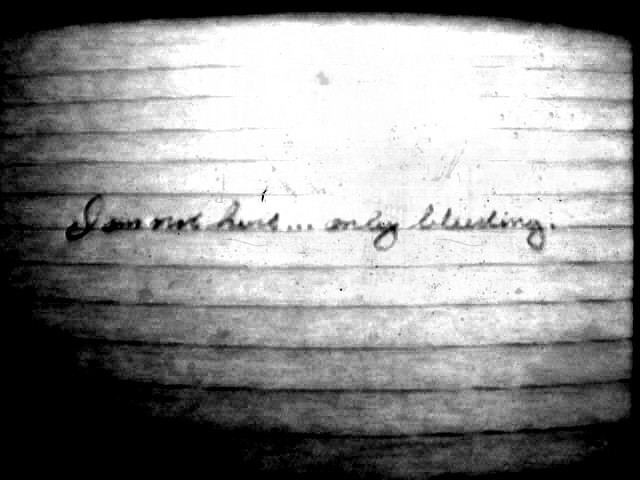 I am not hurt... only bleeding.